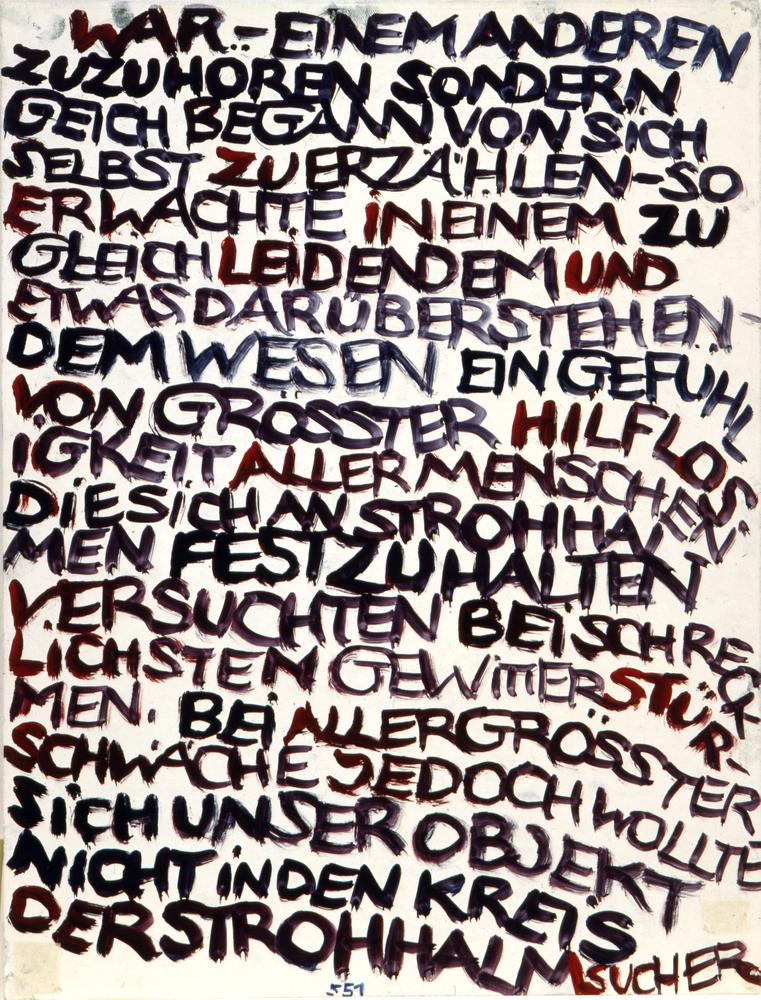 WAR – EINEM ANDEREN
ZUZUHÖREN SONDERN
GEICH BEGANN VON SICH
SELBST ZU ERZÄHLEN – SO
ERWACHTE IN EINEM ZU
GLEICH LEIDENDEM UND
ETWAS DARÜBERSTEHEN-
DEM WESEN EIN GEFÜHL
VON GRÖSSTER HILFLOS-
IGKEIT ALLER MENSCHEN
DIE SICH AN STROHHAL
MEN FESTZUHALTEN
VERSUCHTEN BEI SCHRECK
LICHSTEM GEWITTERSTÜR-
MEN. BEI ALLERGRÖSSTER
SCHWÄCHE JEDOCH WOLLTE
SICH UNSER OBJEKT
NICHT IN DEN KREIS
DER STROHHALMSUCHER
551